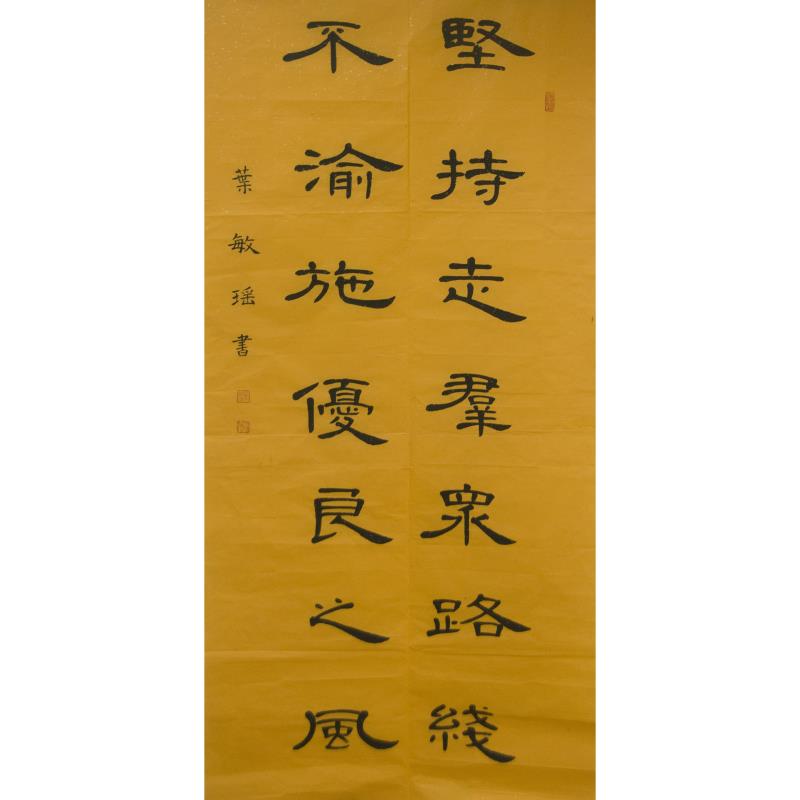 堅持走羣眾路綫
不渝施優良之風
葉敏瑶書